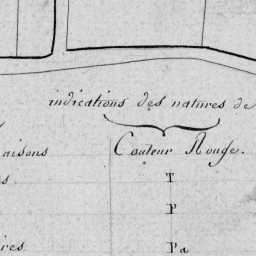 indications des natures de
aisons Couleur Rouge.
s T
P
res Pa